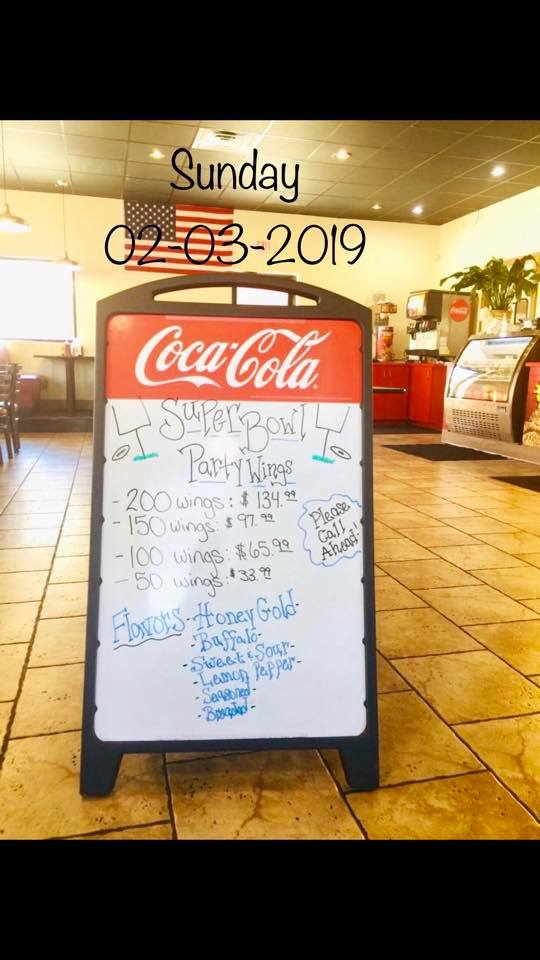 Sunday
02-03-2019
Coca-Cola
Super Bowl
Party Wings
- 200 wings: $134.99
- 150 wings: $97.99
- 100 wings: $65.99
- 50 wings: $33.99
Please
Call
Ahead!
Flavors - Honey Gold -
- Buffalo -
- Sweet & Sour -
- Lemon Pepper -
- Seasoned -
- Breaded -
Coca-Cola